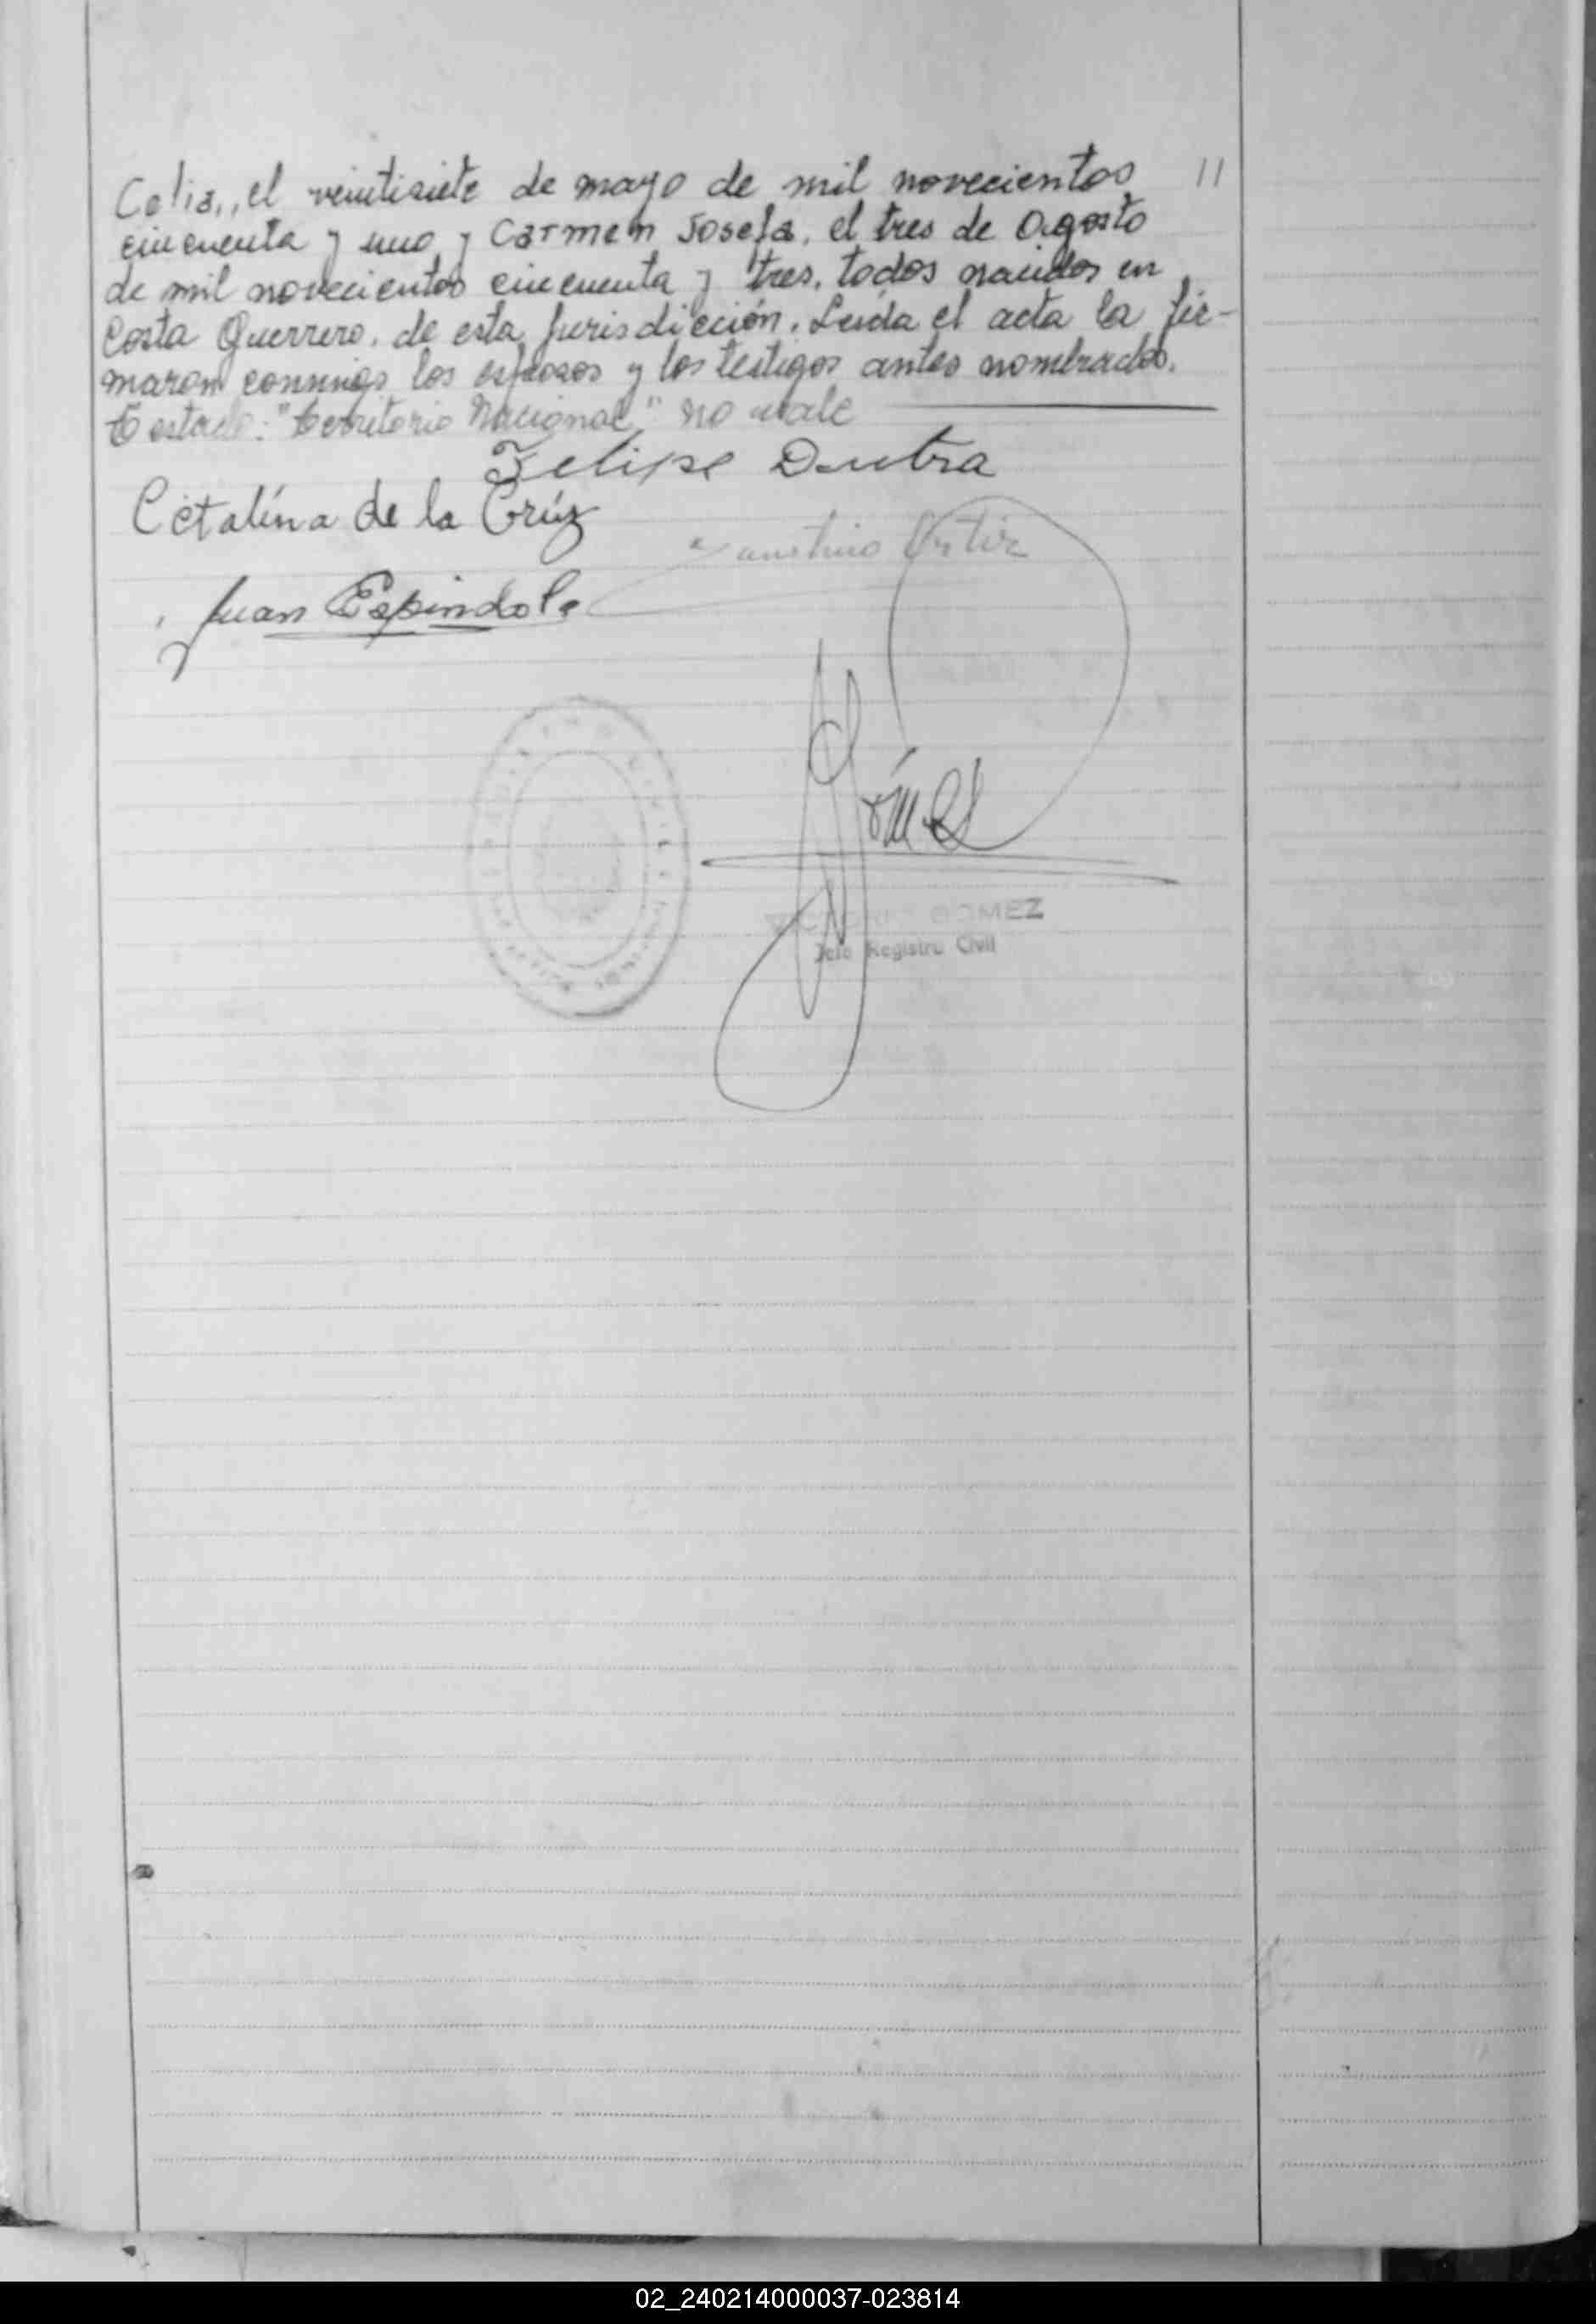 Celia,, el veintisiete de mayo de mil novecientos 11
cincuenta y uno y Carmen Josefa, el tres de Agosto
de mil novecientos cincuenta y tres, todos nacidos en
Costa Guerrero, de esta Jurisdicción. Leída el acta la fir-
maron conmigo los esposos y los testigos antes nombrados.
Testado: "Territorio Nacional" no vale
Felipe Dutra
Catalína de la Crúz
Faustino Ortiz
Juan Espindola
Gómez
GOMEZ
Jefe Registro Civil
02_240214000037-023814